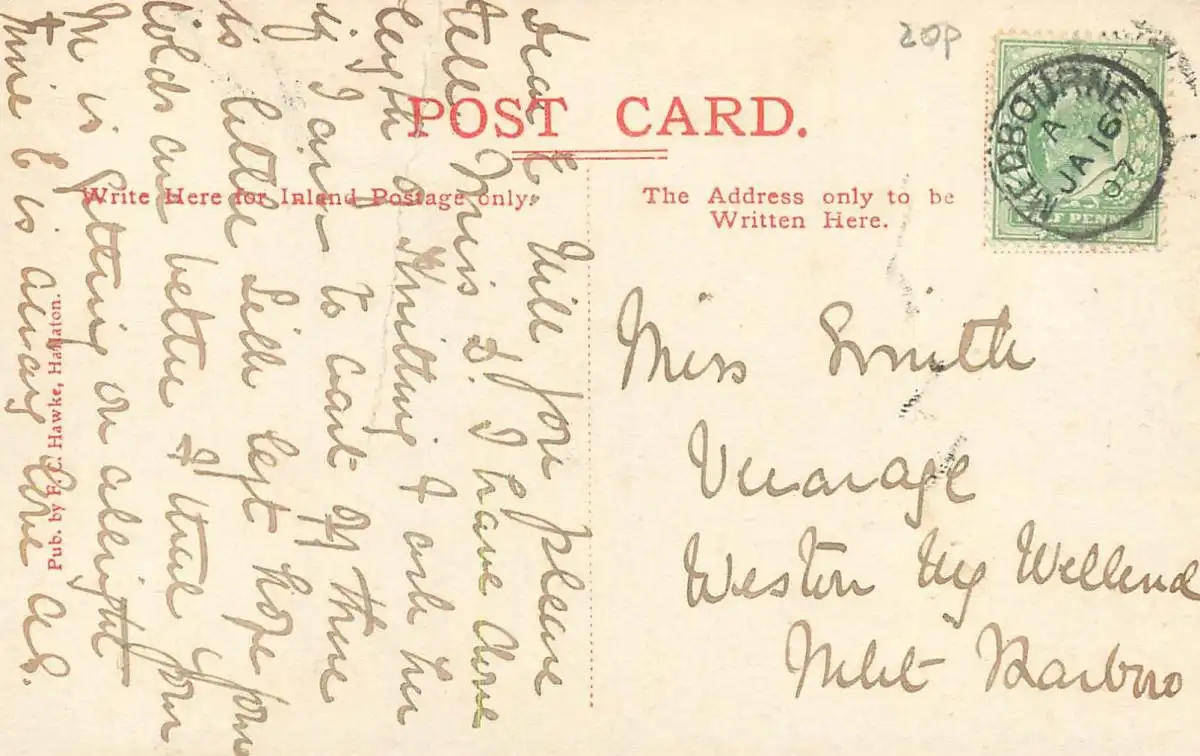 20p
POST CARD.
Write Here for Inland Postage only.
The Address only to be
Written Here.
MEDBOURNE
A
JA 16
07
HALF PENNY
Dear E. Will you please
tell Miss S. I have done
length of Knitting & ask her
if I am to cast off there
is little silk left hope your
colds are better & that your
M is getting on allright
mine E is alway love A S.
Pub. by F. C. Hawke, Hallaton.
Miss Smith
Vicarage
Weston by Welland
Mkt Harboro